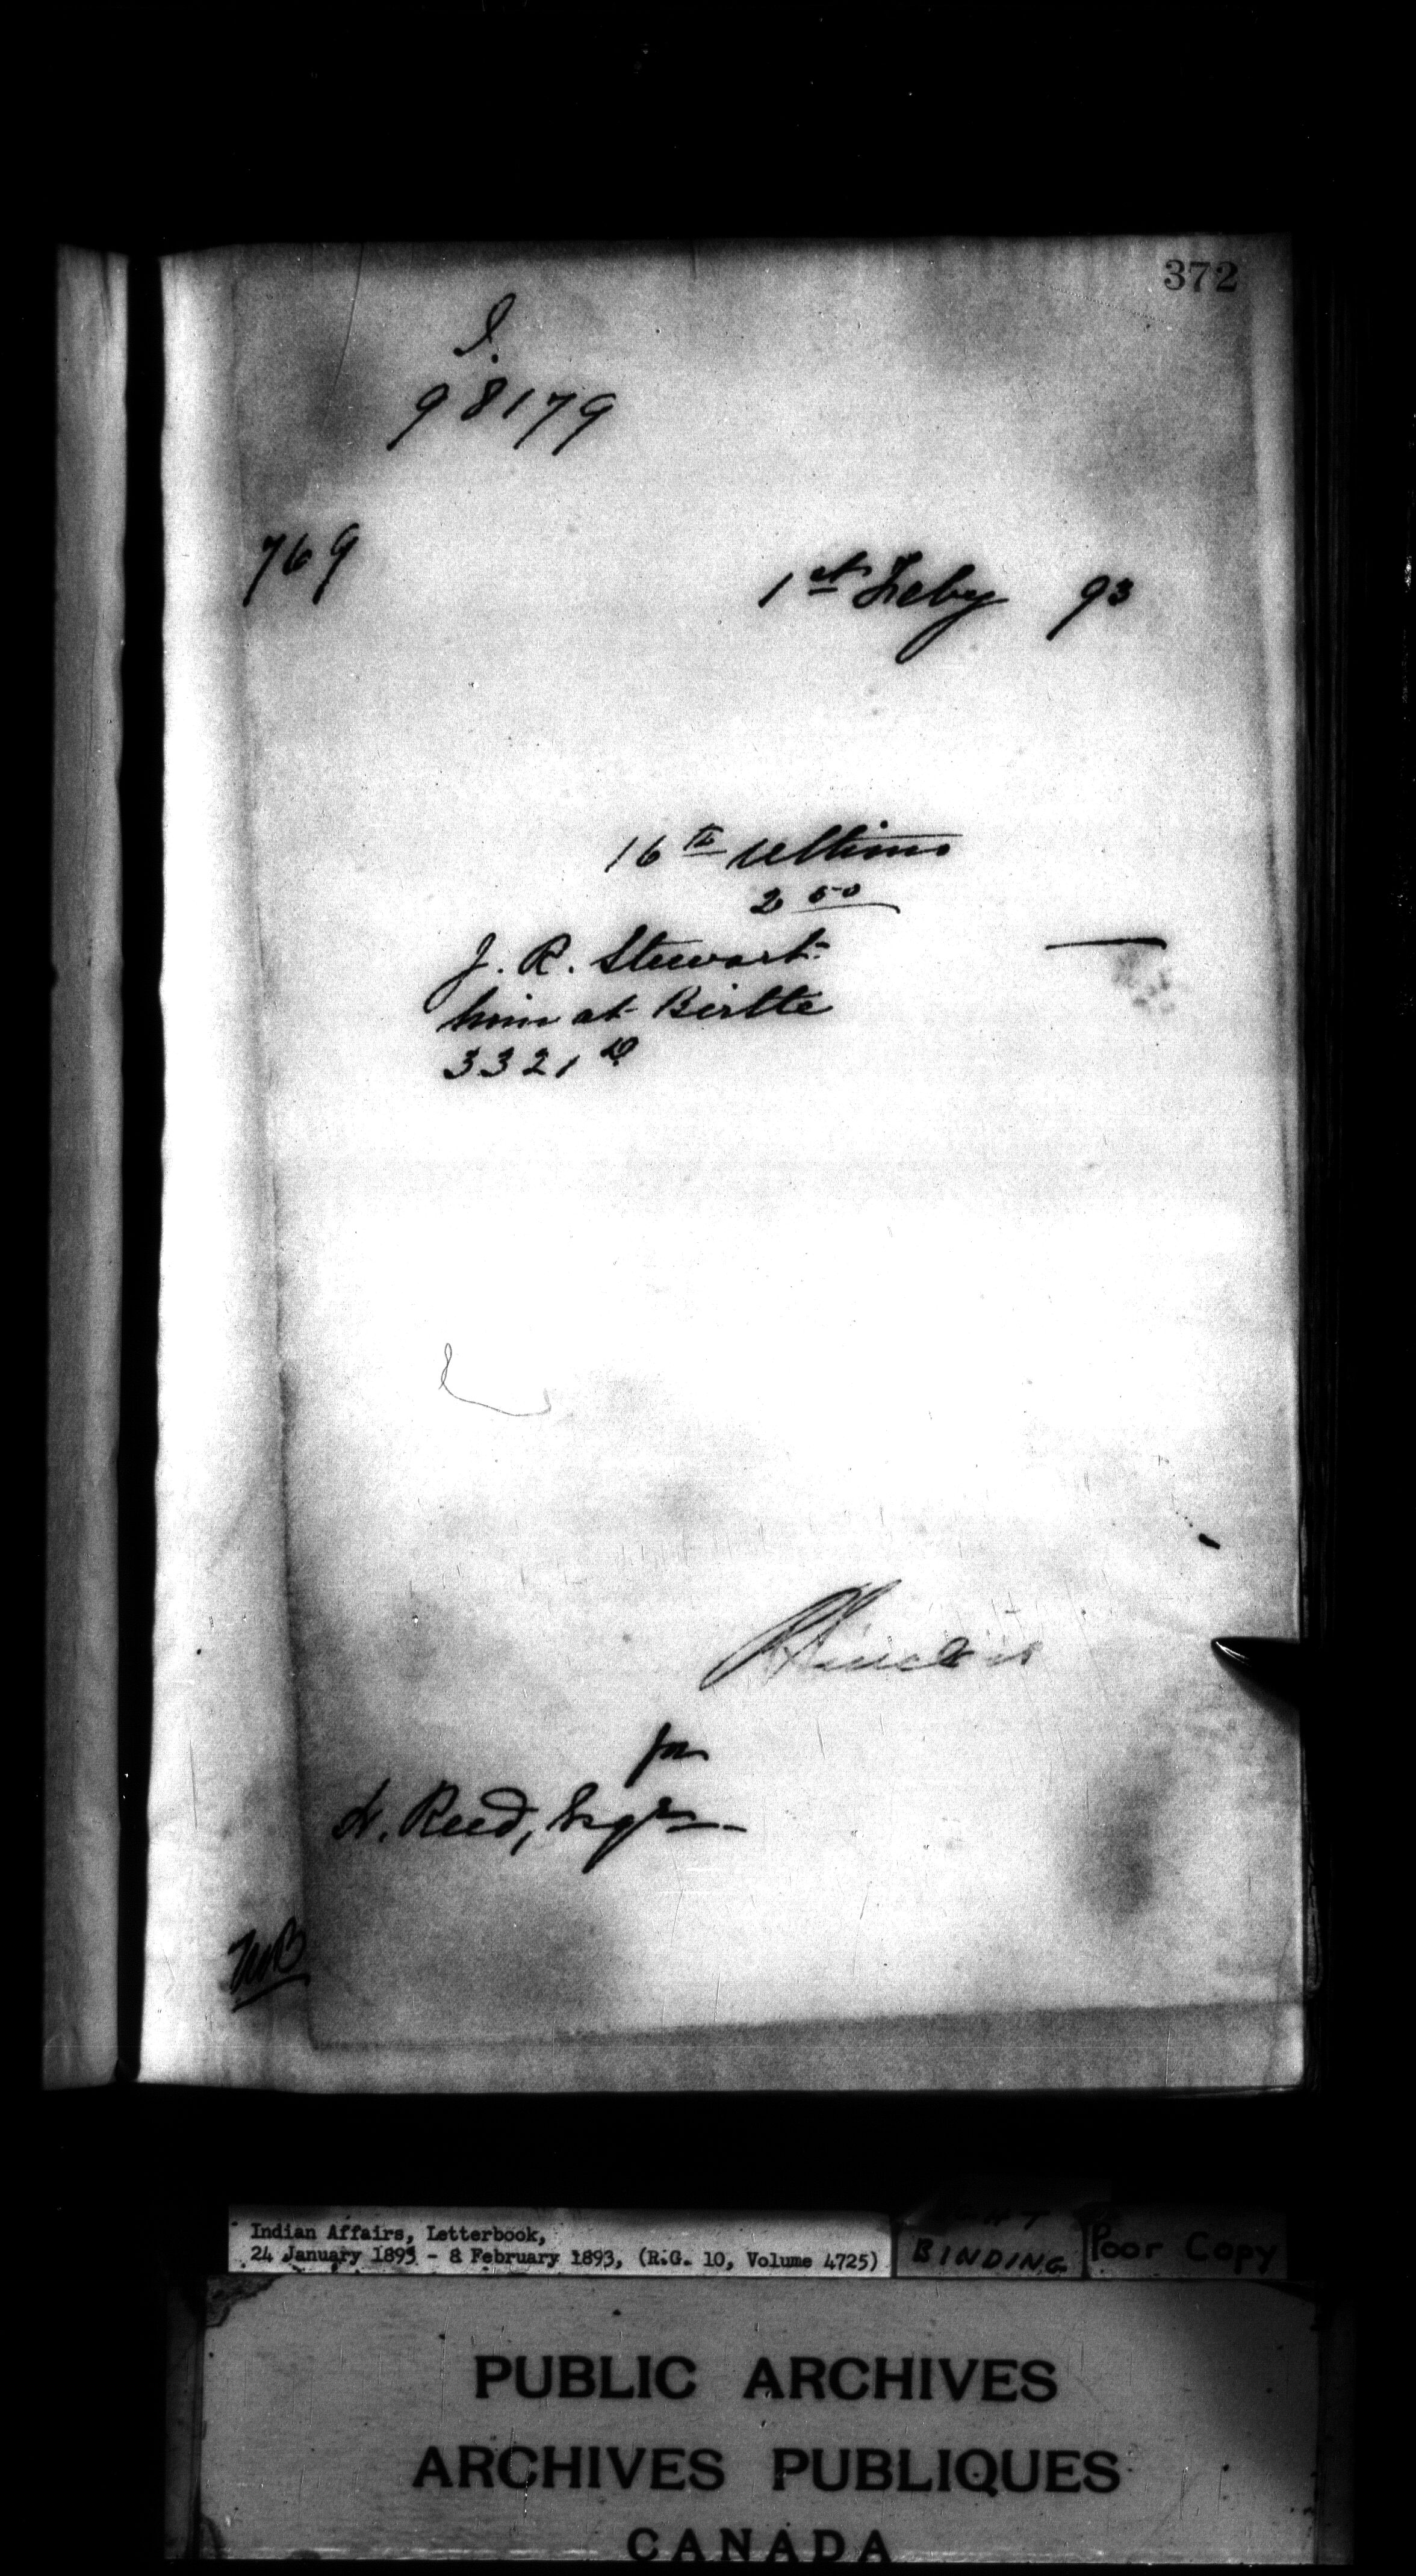 372
I.
98179
769
1st Feby 93
16th Ultimo
2 50
J. R. Stewart
him at Birtle
3321
for
H. Reed, Esqre
Indian Affairs, Letterbook,
24 January 1893 - 8 February 1893, (R.G. 10, Volume 4725)
BINDING
Poor Copy
PUBLIC ARCHIVES
ARCHIVES PUBLIQUES
CANADA